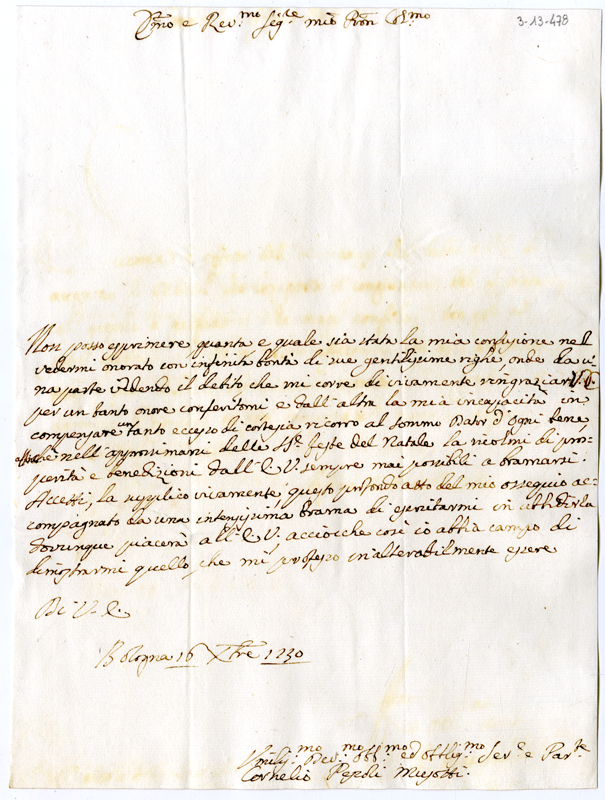 3-13-478
Emo e Rev.mo Sig.re mio Pron Col.mo
Non posso esprimere quanta e quale sia stata la mia confusione nel
vedermi onorato con infinita bontà di sue gentilissime righe onde da u-
na parte vedendo il debito che mi corre di vivamente ringraziar V. E.
per un tanto onore conferitomi e dall'altra la mia incapacità in
compensare un tanto eccesso di cortesia ricorro al sommo Dator d'ogni bene
affinchè nell'approssimarsi delle SS.e feste del Natale la ricolmi di pros-
perità e benedizioni dall'E. V. sempre mai possibili a bramarsi.
Accetti, la supplico vivamente questo profondo atto del mio ossequio ac-
compagnato da una intensissima brama di esercitarmi in ubbidirla
dovunque piacerà all'E. V. acciocche così io abbia campo di
dimostrarmi quello, che mi professo inalterabilmente essere
Di V. E.
Bologna 16 Xbre 1730
Umiliss.mo Dev.mo Oss.mo ed Obblig.mo Ser.e e Par.te
Cornelio Pepoli Musotti.